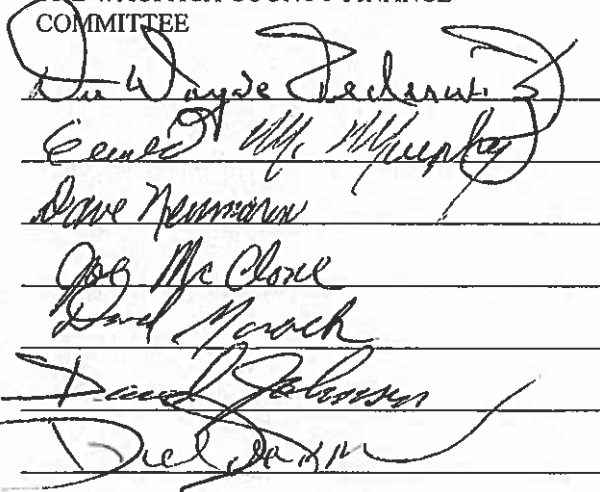 COMMITTEE
DuWayne Federwitz
Gerald M. Murphy
Dave Neumann
Joe McClone
David Morack
David Johnson
Dick